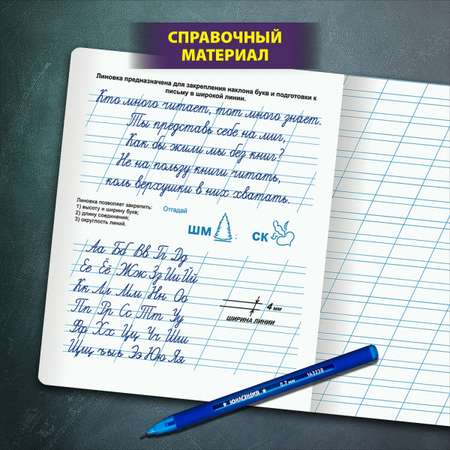 СПРАВОЧНЫЙ
МАТЕРИАЛ
Линовка предназначена для закрепления наклона букв и подготовки к
письму в широкой линии.
Кто много читает, тот много знает.
Ты представь себе на миг,
Как бы жили мы без книг?
Не на пользу книги читать,
коль верхушки в них хватать.
Линовка позволяет закрепить:
1) высоту и ширину букв;
2) длину соединения;
3) округлость линий.
Отгадай
ШМ
СК
Аа Бб Вв Гг Дд
Ее Ёё Жж Зз Ии Йй
Кк Лл Мм Нн Оо
Пп Рр Сс Тт Уу
Фф Хх Цц Чч Шш
Щщ ъ ы ь Ээ Юю Яя
4 мм
ШИРИНА ЛИНИИ
ЮНЛАНДИЯ 0,7 мм